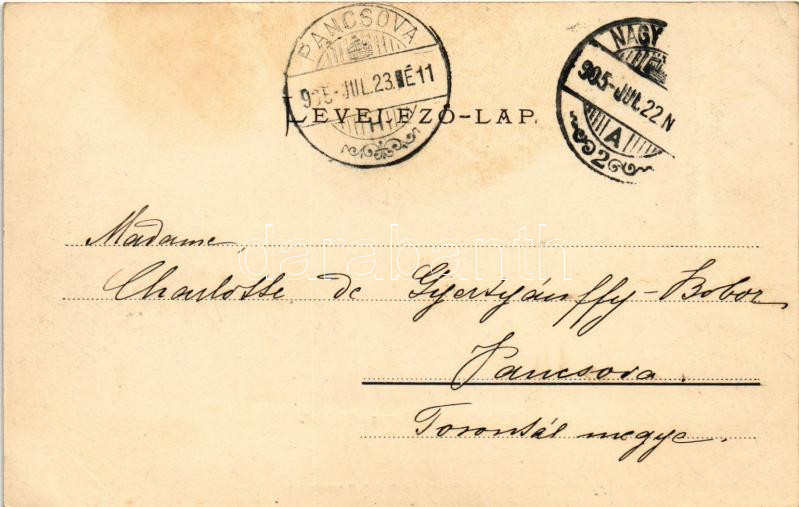 PANCSOVA
905-JUL.23. É11
NAGY
905-JUL.22 N
A
2
LEVELEZŐ-LAP.
darabanth
Madame
Charlotte de Gyertyánffy-Bobor
Pancsova.
Torontál megye.